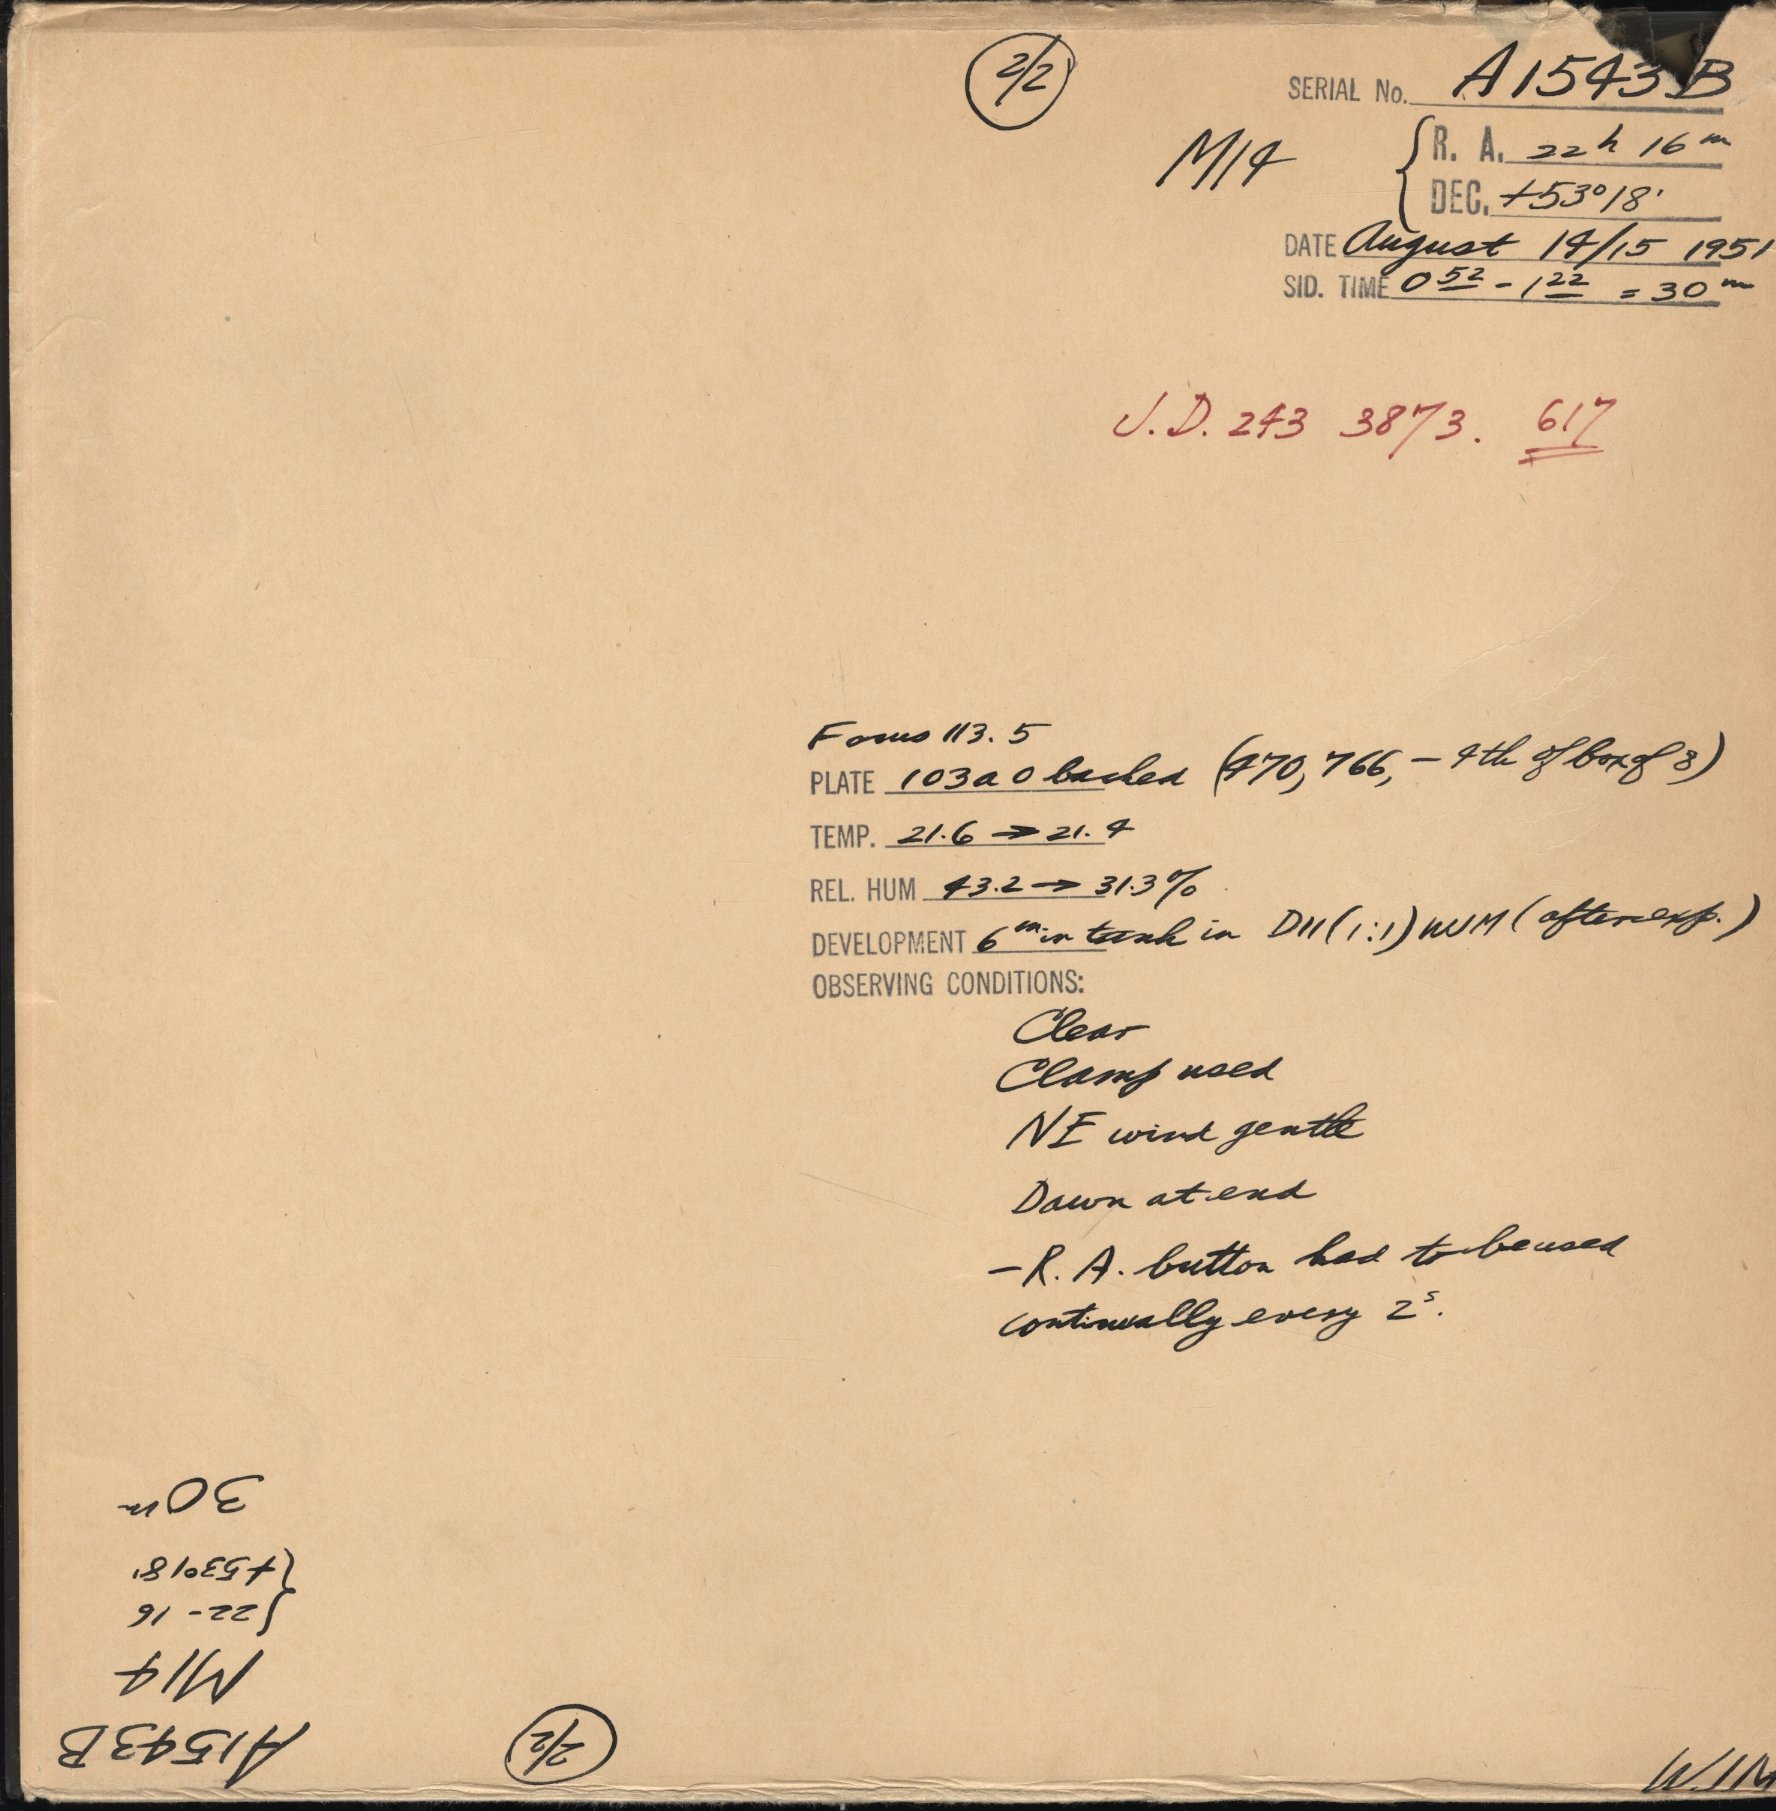 2/2
SERIAL No. A1543B
M14 { R. A. 22h 16m
DEC. +53°18'
DATE August 14/15 1951
SID. TIME 0 52 - 1 22 = 30m
J.D. 243 3873. 617
Focus 113.5
PLATE 103a O backed (470,766, - 4th of box of 8)
TEMP. 21.6 → 21.4
REL. HUM 43.2 → 31.3%
DEVELOPMENT 6m in tank in D11 (1:1) WJM (after exp.)
OBSERVING CONDITIONS:
Clear
Clamp used
NE wind gentle
Dawn at end
- R. A. button had to be used
continually every 2s.
A1543B
M14
{ 22 - 16
{ +53°18'
30m
2/2